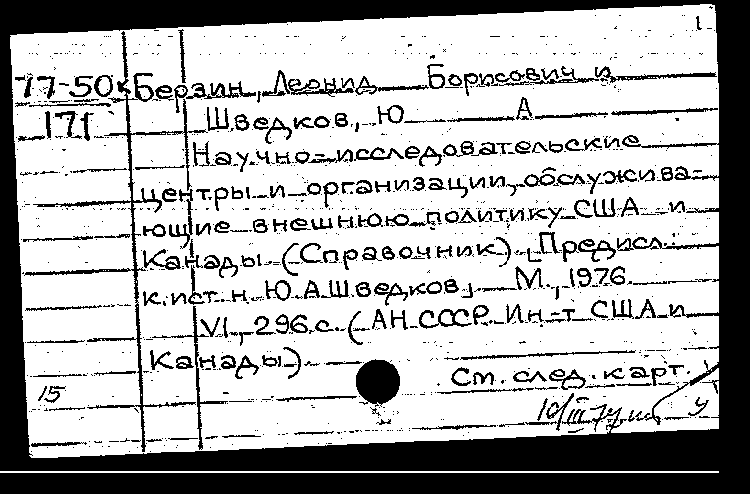 1
77-50к Берзин, Леонид Борисович и
171 Шведков, Ю А
Научно-исследовательские
центры и организации, обслужива-
ющие внешнюю политику США и
Канады (Справочник). [Предисл.:
к.ист.н. Ю.А.Шведков]. М., 1976.
VI, 296.с. (АН СССР. Ин-т США и
Канады).
15 См. след. карт.
10/III 77